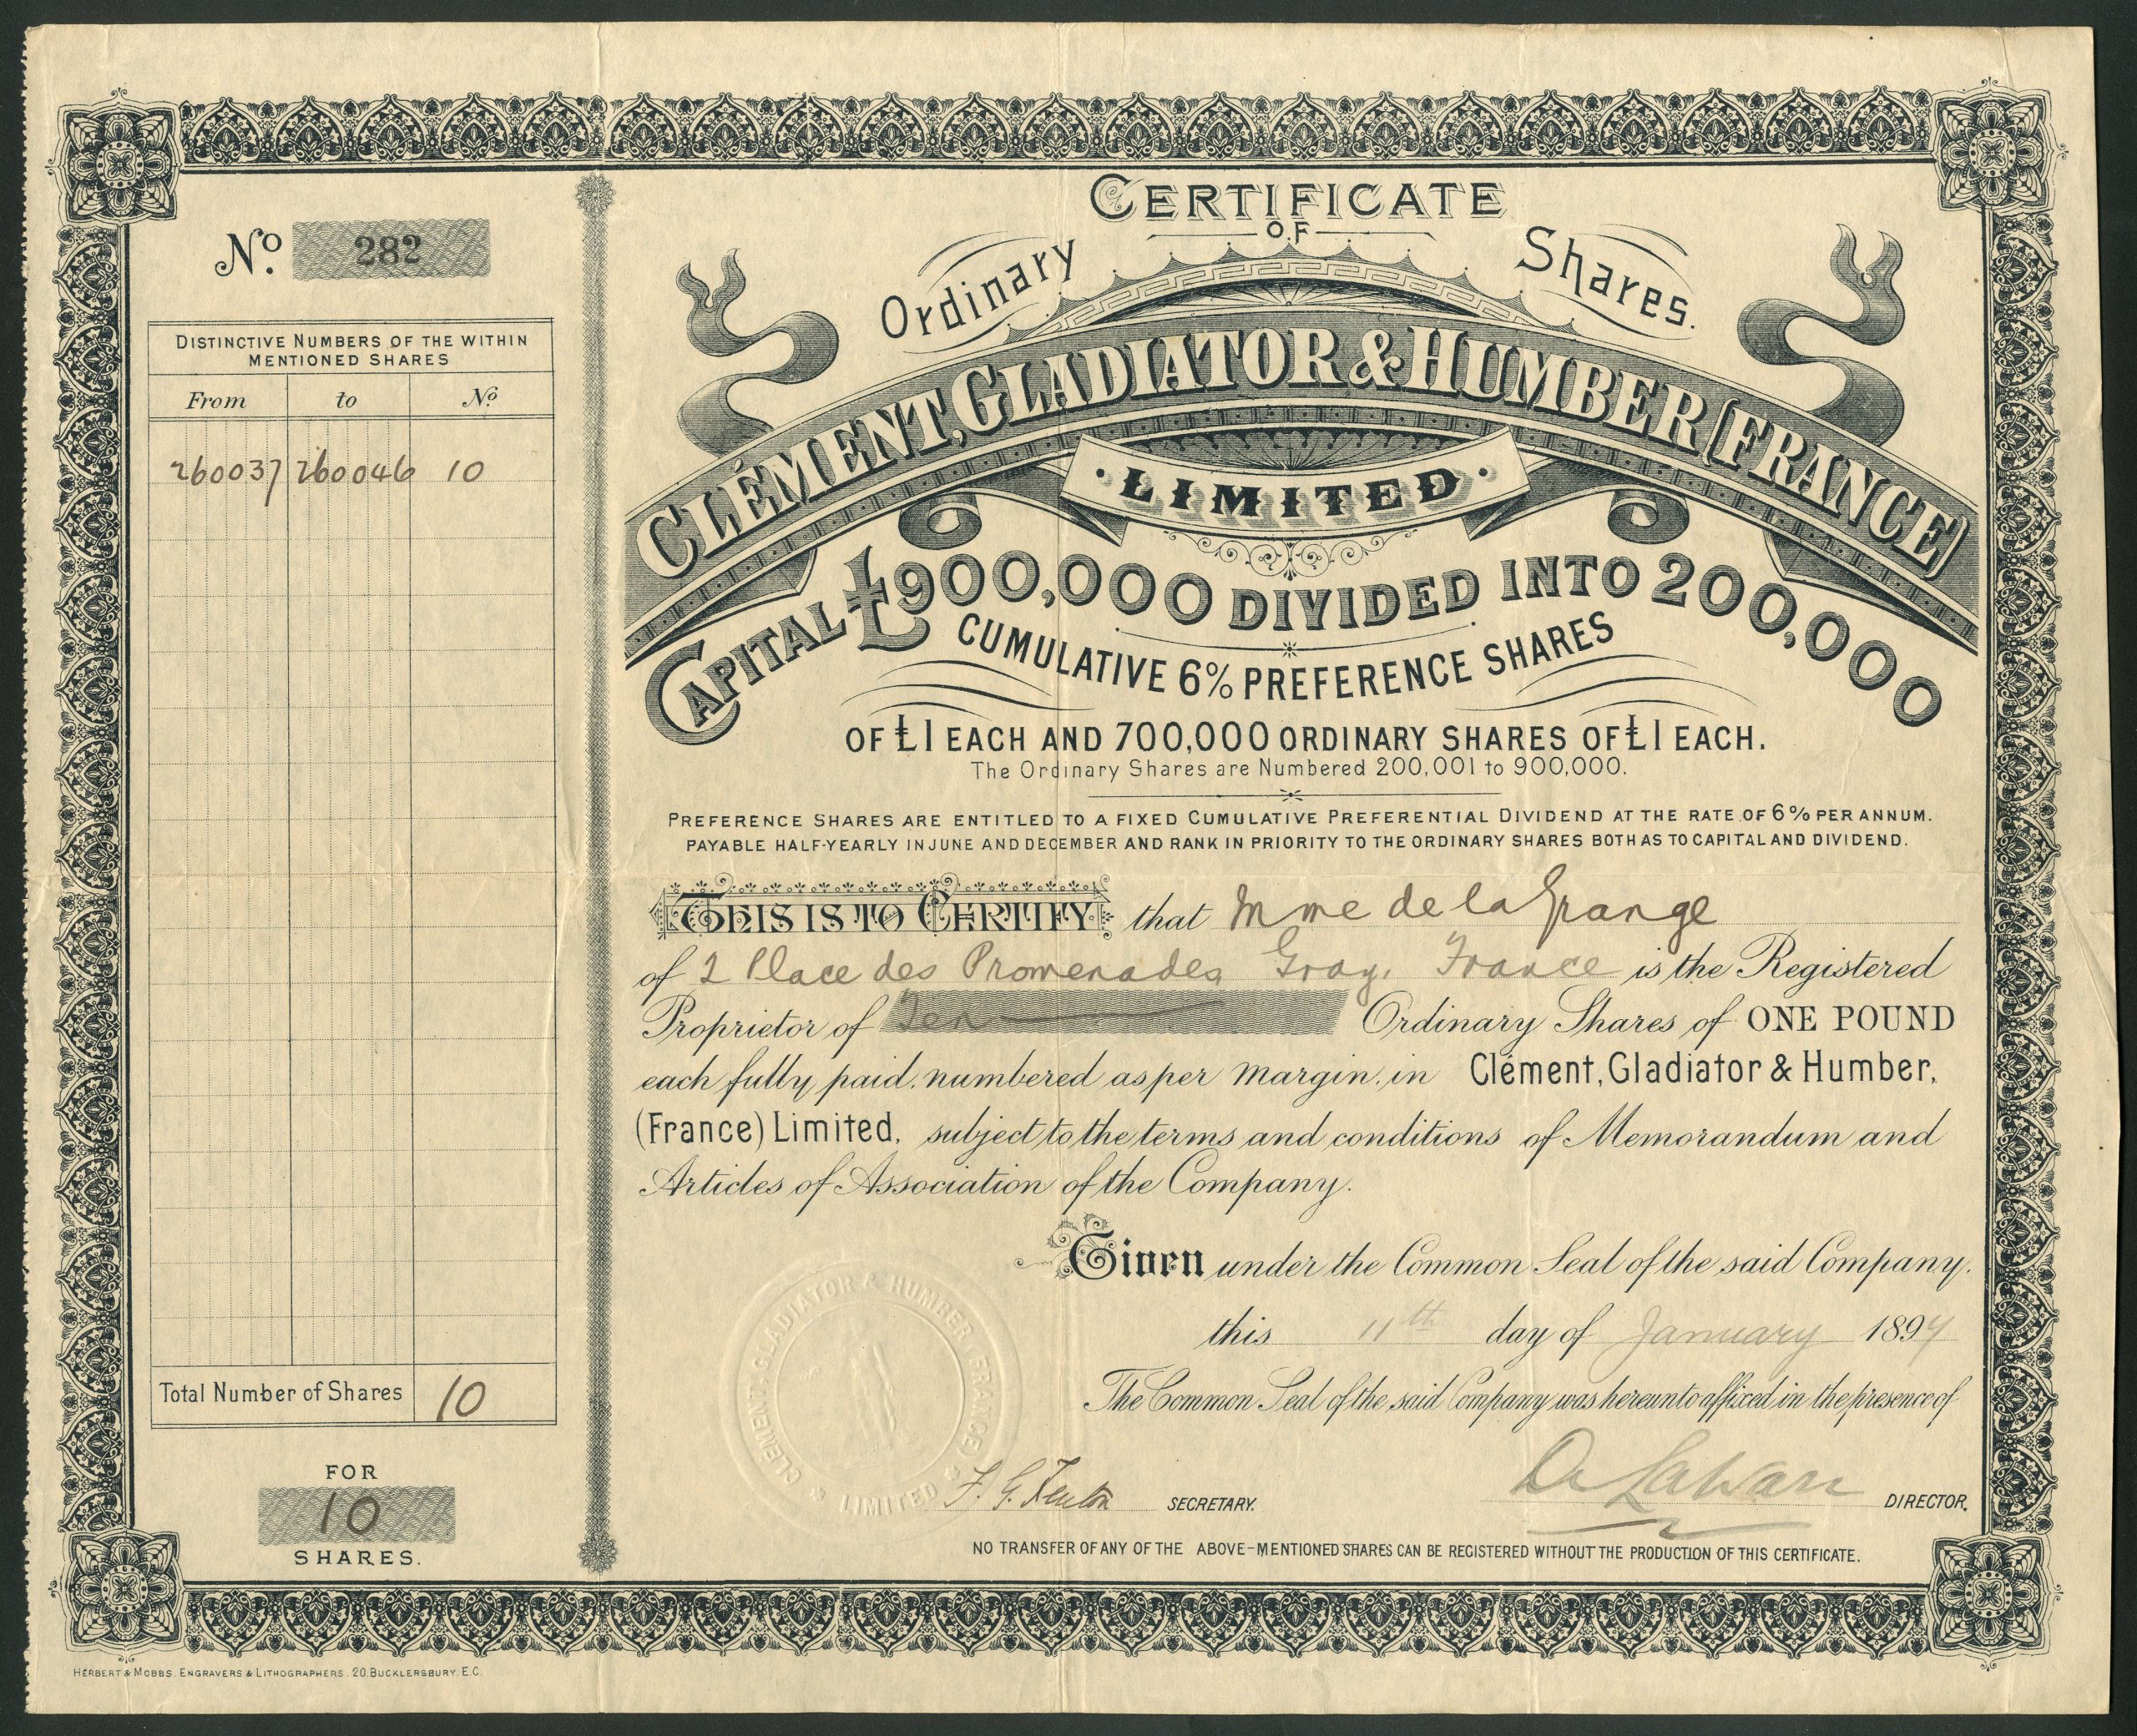 No. 282
DISTINCTIVE NUMBERS OF THE WITHIN
MENTIONED SHARES
From to No.
260037 260046 10
Total Number of Shares 10
FOR
10
SHARES.
CERTIFICATE
OF
Ordinary Shares.
CLÉMENT, GLADIATOR & HUMBER (FRANCE)
LIMITED
CAPITAL £900,000 DIVIDED INTO 200,000
CUMULATIVE 6% PREFERENCE SHARES
OF £1 EACH AND 700,000 ORDINARY SHARES OF £1 EACH.
The Ordinary Shares are Numbered 200,001 to 900,000.
PREFERENCE SHARES ARE ENTITLED TO A FIXED CUMULATIVE PREFERENTIAL DIVIDEND AT THE RATE OF 6% PER ANNUM.
PAYABLE HALF-YEARLY IN JUNE AND DECEMBER AND RANK IN PRIORITY TO THE ORDINARY SHARES BOTH AS TO CAPITAL AND DIVIDEND.
THIS IS TO CERTIFY that Mme de la Grange
of 2 Place des Promenades Gray, France is the Registered
Proprietor of Ten Ordinary Shares of ONE POUND
each fully paid, numbered as per margin, in Clément, Gladiator & Humber,
(France) Limited, subject to the terms and conditions of Memorandum and
Articles of Association of the Company.
Given under the Common Seal of the said Company.
this 11th day of January 189
The Common Seal of the said Company was hereunto affixed in the presence of
CLEMENT, GLADIATOR & HUMBER (FRANCE) LIMITED
F. G. Fenton SECRETARY.
De La Warr DIRECTOR.
NO TRANSFER OF ANY OF THE ABOVE-MENTIONED SHARES CAN BE REGISTERED WITHOUT THE PRODUCTION OF THIS CERTIFICATE.
HERBERT & MOBBS. ENGRAVERS & LITHOGRAPHERS. 20. BUCKLERSBURY. E.C.